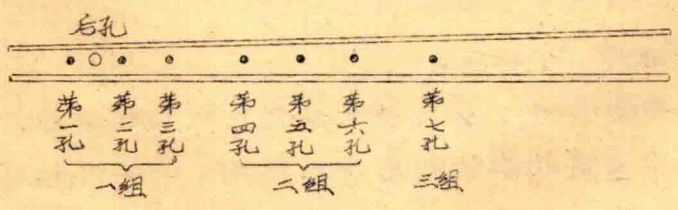 后孔
第一孔
第二孔
第三孔
第四孔
第五孔
第六孔
第七孔
一组
二组
三组